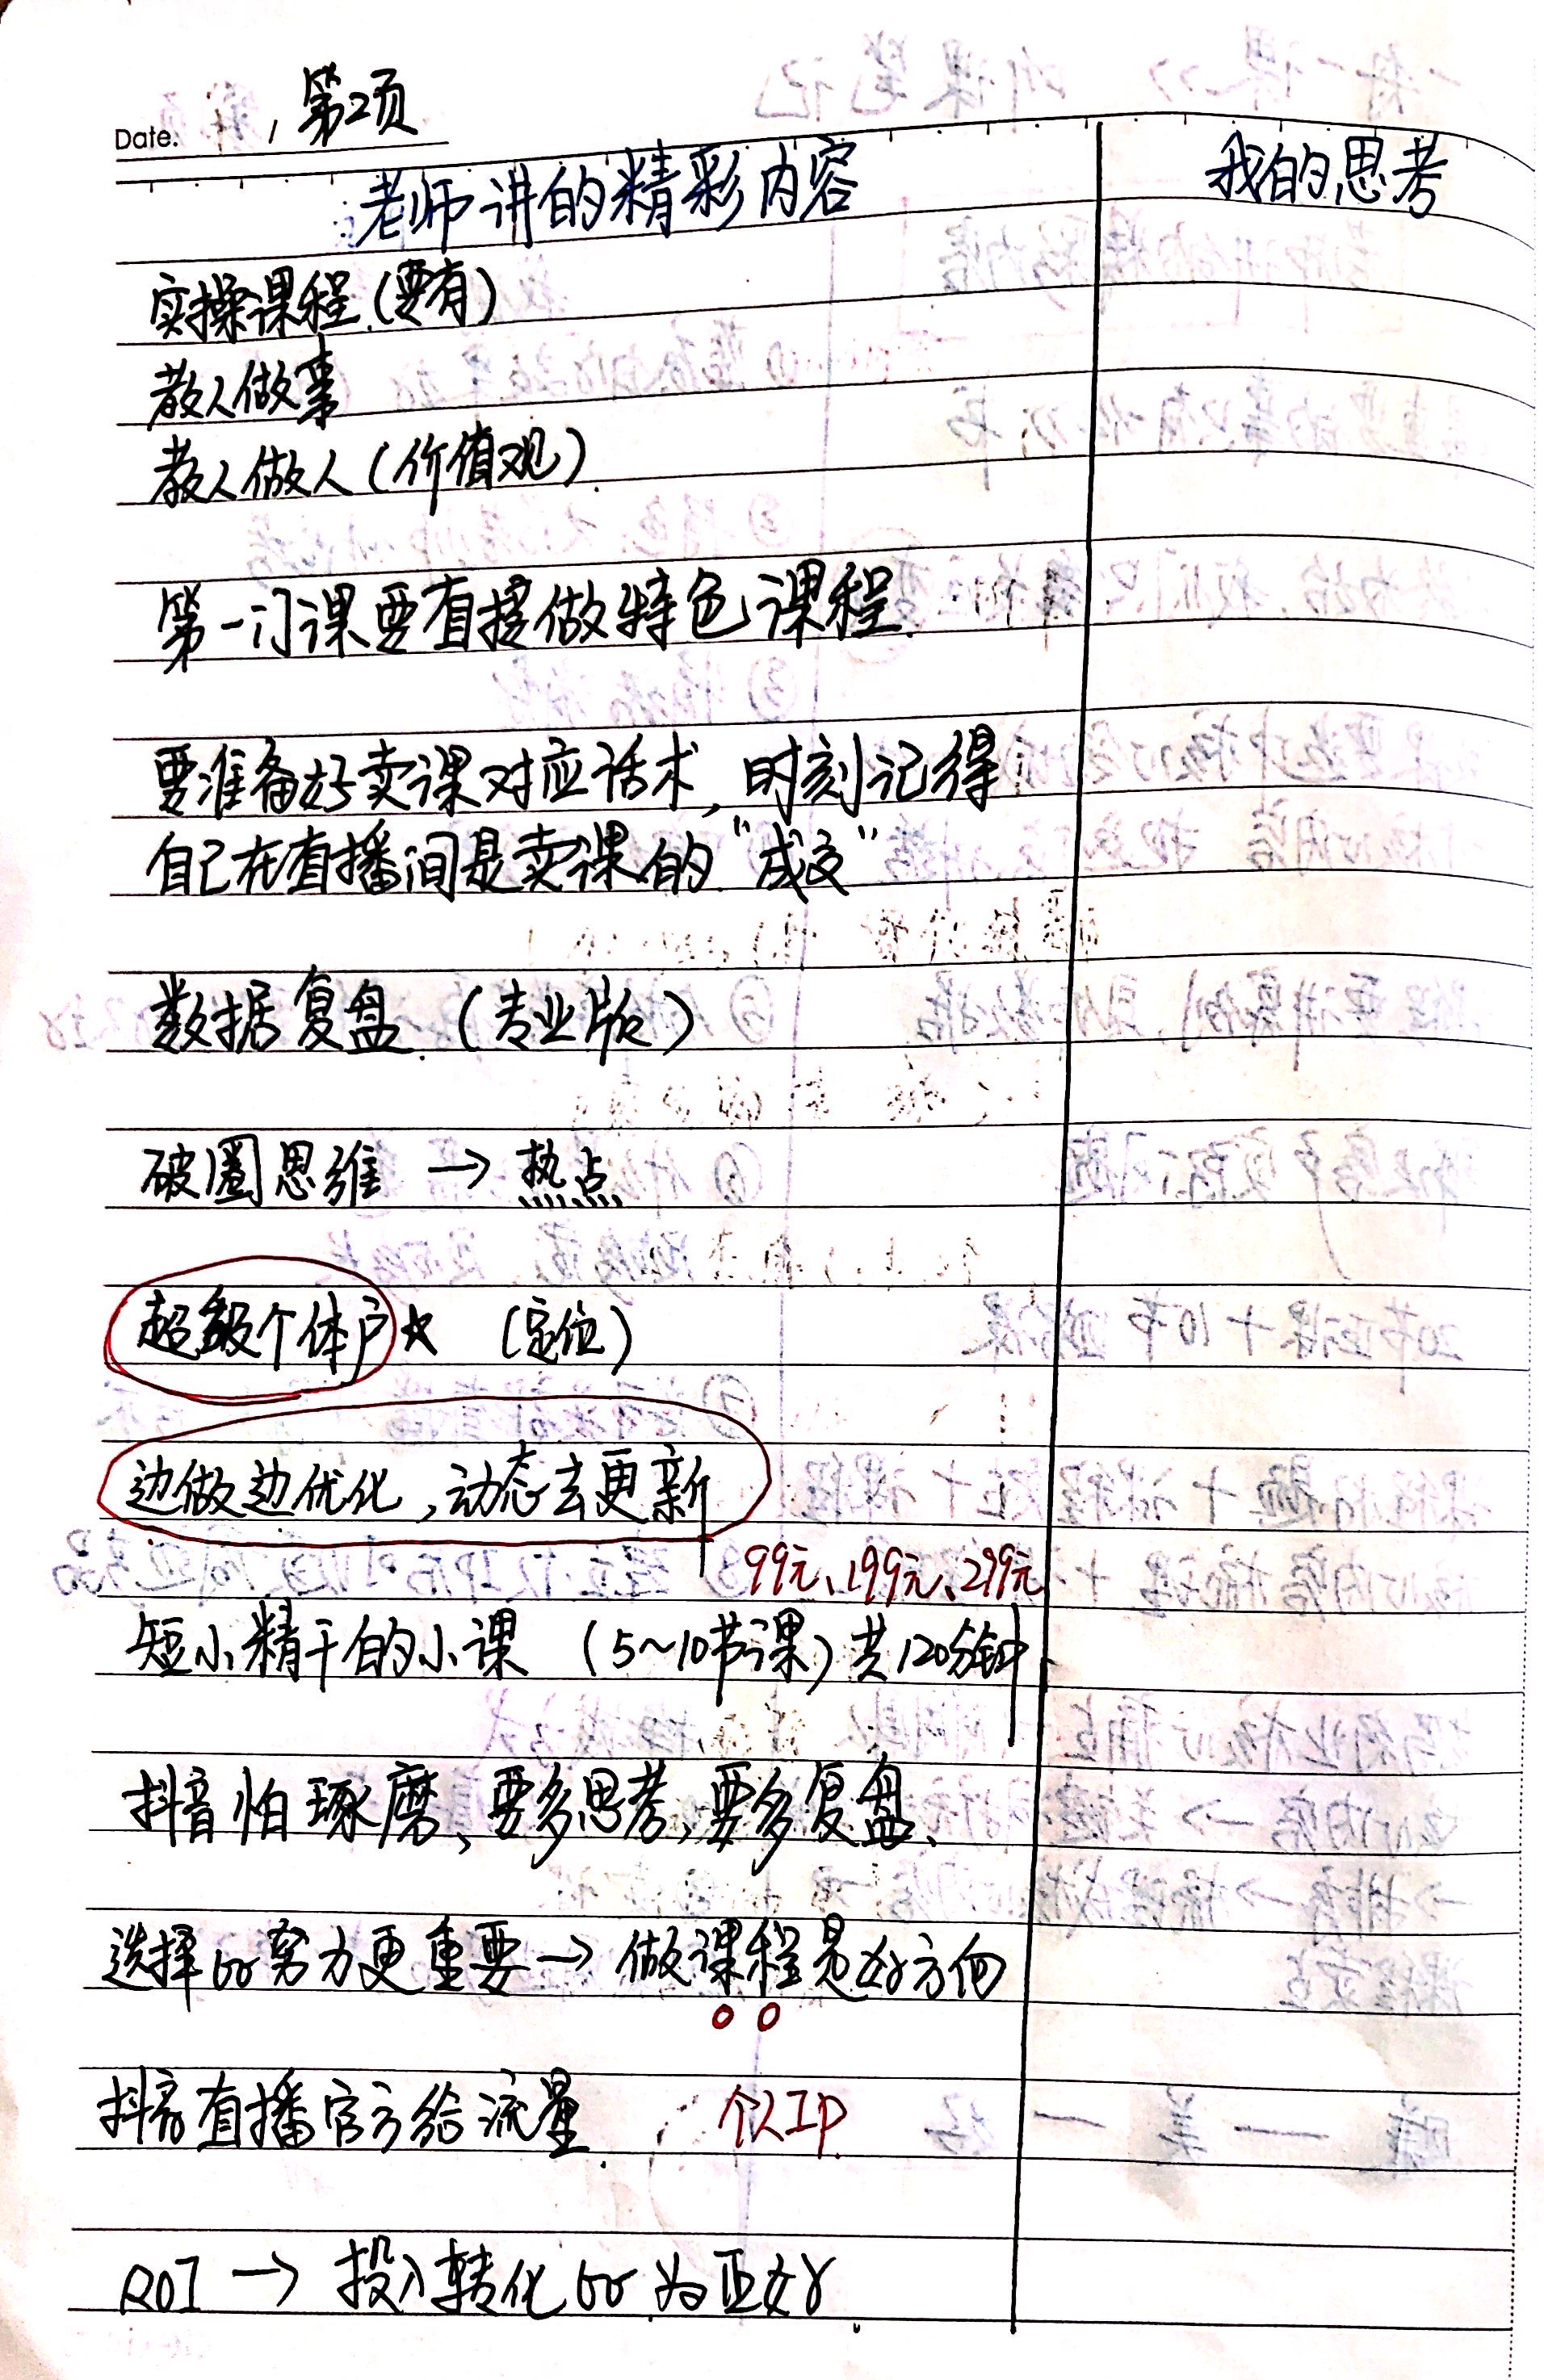 Date. 第2页
老师讲的精彩内容 我的思考
实操课程(要有)
教人做事
教人做人(价值观)
第一门课要直接做特色课程.
要准备好卖课对应话术,时刻记得
自己在直播间是卖课的"成交"
数据复盘.(专业版)
破圈思维 → 热点
超级个体户★ (定位)
边做边优化,动态去更新
99元、199元、299元
短小精干的小课 (5~10节课)共120分钟
抖音怕琢磨、要多思考,要多复盘、
选择比努力更重要→做课程是好方向
抖音直播官方给流量. 个人IP.
ROI → 投入转化比为正好.